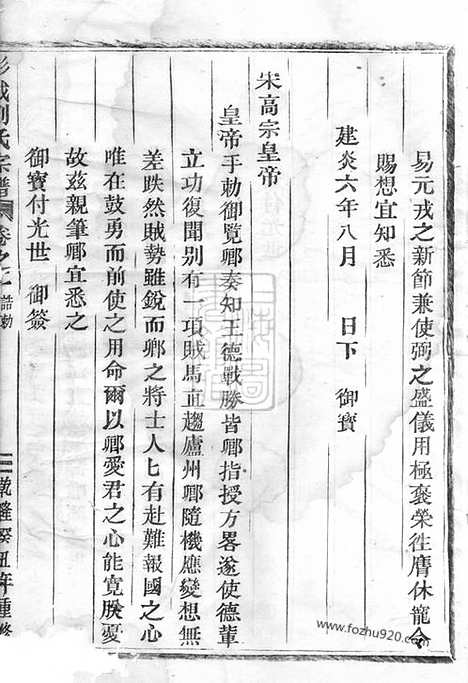 易元戎之新節兼使弼之盛儀用極褒榮徃膺休寵今
賜想宜知悉
建炎六年八月　日下　御寶
宋高宗皇帝
皇帝手勅御覽卿奏知王德戰勝皆卿指授方畧遂使德輩
立功復開别有一項賊馬直趨廬州卿隨機應變想無
差跌然賊勢雖銳而卿之將士人匕有赴難報國之心
唯在鼓勇而前使之用命爾以卿愛君之心能寛朕憂
故兹親筆卿宜悉之
御寶付光世　御簽
彭城劉氏宗譜　卷之　誥勅　乾隆癸丑年重修
www.fozhu920.com